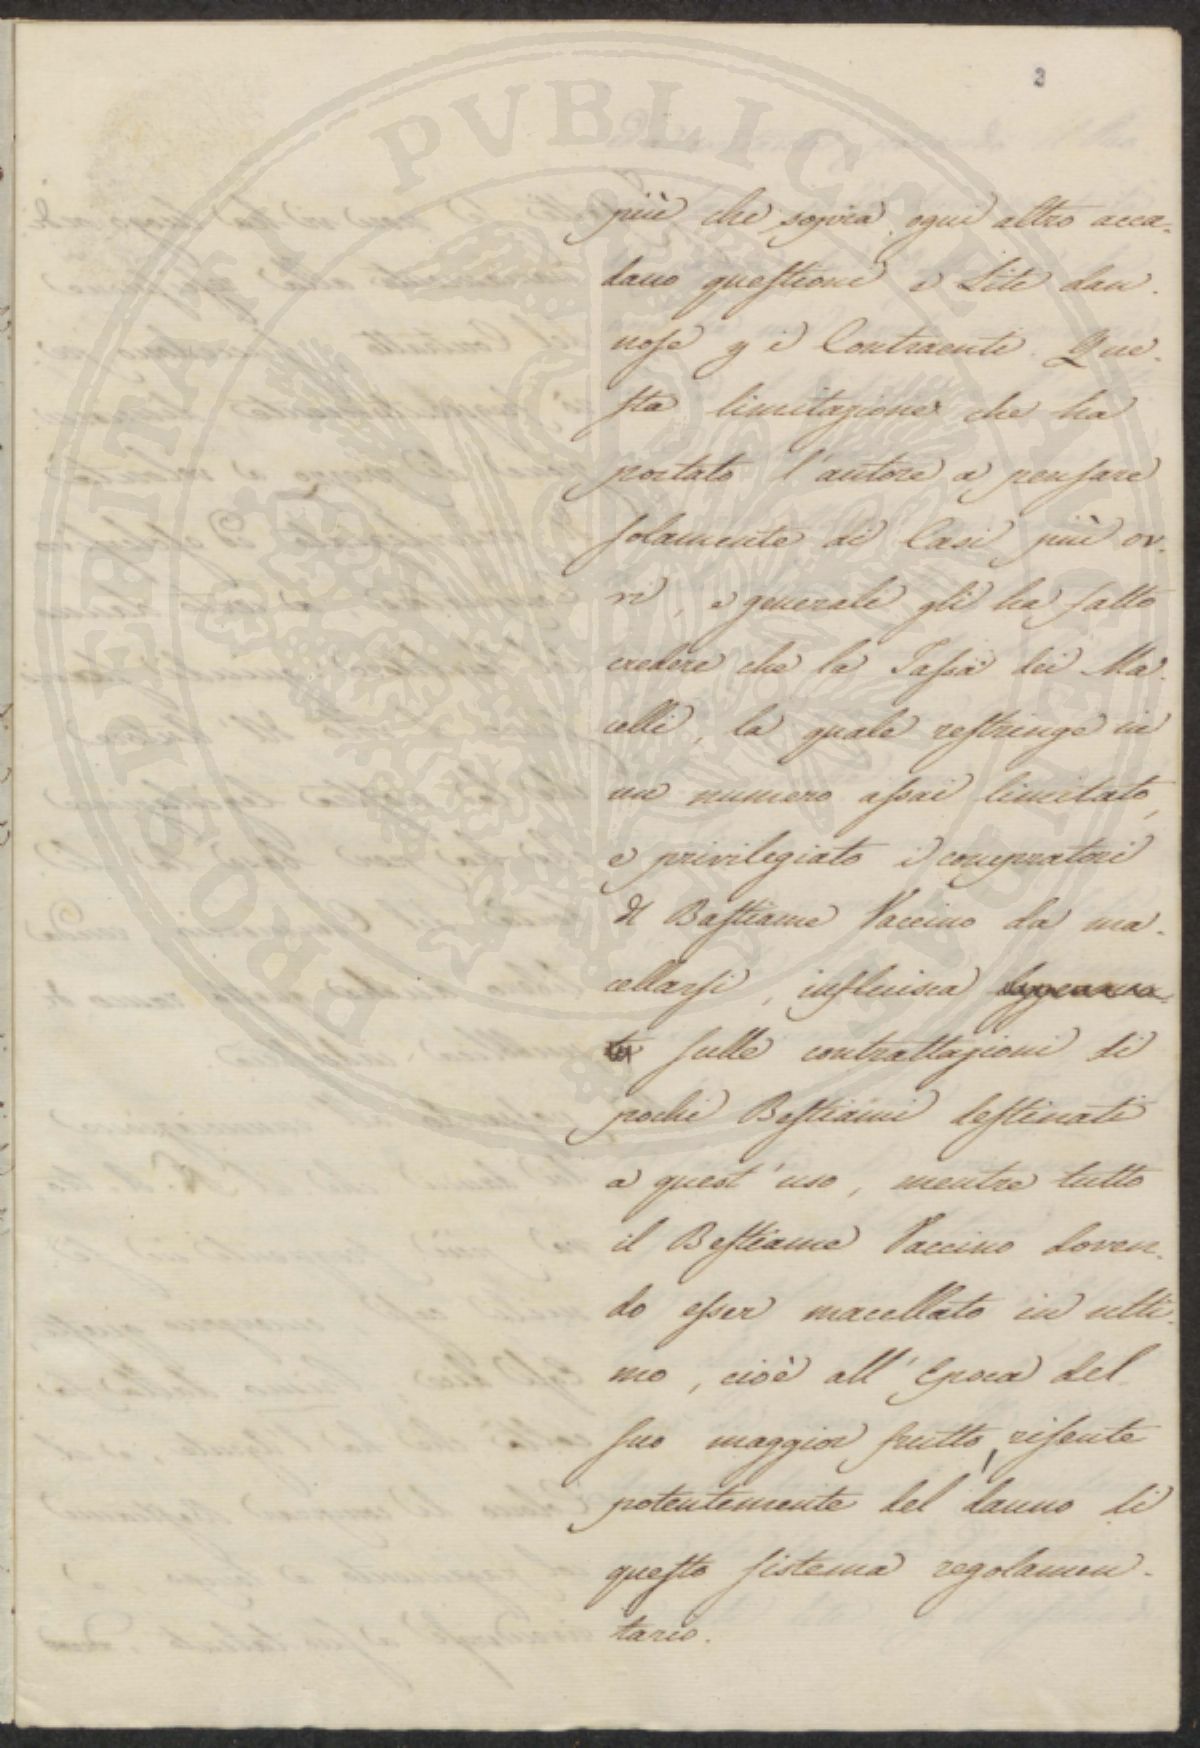 PVBLICAE VTILITATI PROSPERITATI
3
più che sopra ogni altro acca-
dano questioni e Lite dan-
nose p i Contraenti. Que-
sta limitazione che ha
portato l'autore a pensare
solamente ai Casi più ov-
vi, e generali gli ha fatto
credere che la Tassa dei Ma-
celli, la quale restringe in
un numero assai limitato,
e privilegiato i compratori
di Bastiame Vaccino da ma-
cellarsi, influisca
sulle contrattazioni di
pochi Bestiami destinati
a quest'uso, mentre tutto
il Bestiame Vaccino doven-
do esser macellato in ulti-
mo, cioè all'Epoca del
suo maggior frutto, risente
potentemente del danno di
questo sistema regolamen-
tario.